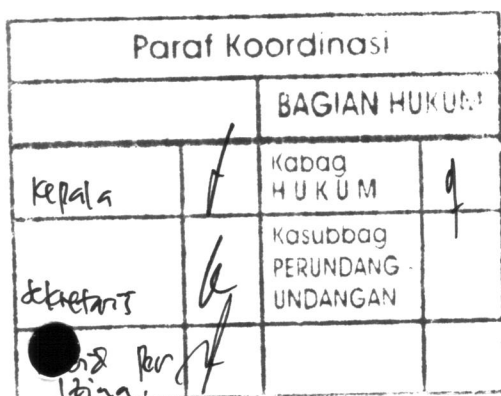 Paraf Koordinasi
BAGIAN HUKUM
Kepala
Kabag
HUKUM
Sekretaris
Kasubbag
PERUNDANG -
UNDANGAN